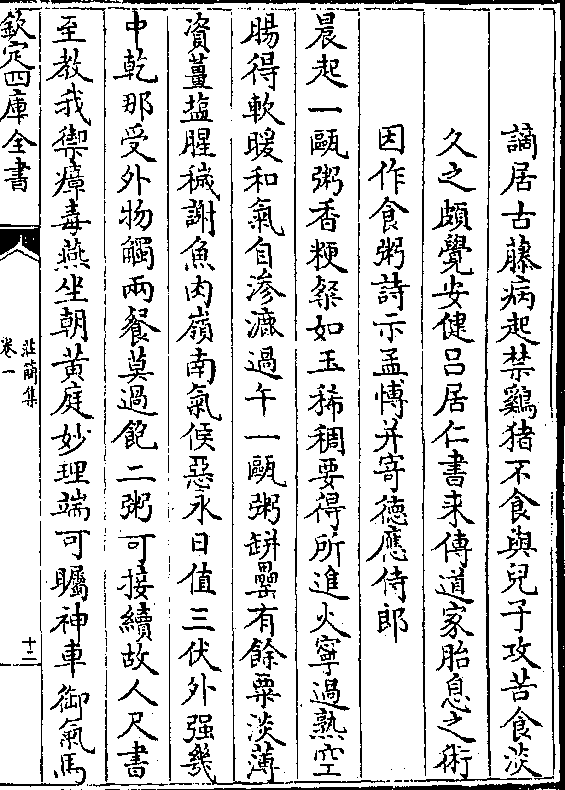 謫居古藤病起禁鷄猪不食與兒子攻苦食淡
久之頗覺安健吕居仁書来傳道家胎息之術
因作食粥詩示孟博并寄德應侍郎
晨起一甌粥香粳粲如玉稀稠要得所進火寧過熟空
腸得軟暖和氣自滲漉過午一甌粥缾罍有餘粟淡薄
資薑塩腥穢謝魚肉嶺南氣候惡永日值三伏外强幾
中乾那受外物觸兩餐莫過飽二粥可接續故人尺書
至教我禦瘴毒燕坐朝黄庭妙理端可矚神車御氣馬
欽定四庫全書
莊簡集
卷一
十三